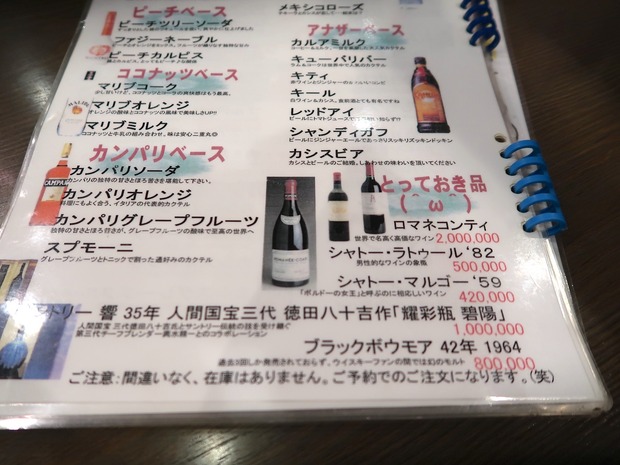 ピーチベース
ピーチツリーソーダ
ファジーネーブル
ピーチカルピス
ココナッツベース
マリブコーク
マリブオレンジ
オレンジの酸味とココナツの風味で美味しさUP!!
マリブミルク
ココナッツと牛乳の組み合わせ、味は安心二重丸◎
カンパリベース
カンパリソーダ
カンパリの甘さとほろ苦さを堪能して下さい。
カンパリオレンジ
料理にもよく合う、イタリアの代表的カクテル
カンパリグレープフルーツ
スプモーニ
グレープフルーツとトニックで割った通好みのカクテル
メキシコローズ
アナザーベース
カルアミルク
キューバリバー
ラム&コークは世界中で人気のカクテル
キティ
キール
レッドアイ
シャンディガフ
カシスビア
カシスとビールのご結婚。しあわせの味わいを頂してください
とっておき品
(^ω^)
ロマネコンティ
世界で名高く高価なワイン 2,000,000
シャトー・ラトゥール‘82
男性的なワインの象徴 500,000
シャトー・マルゴー‘59
「ボルドーの女王」と呼ぶのに相応しいワイン 420,000
トリー 響 35年 人間国宝三代 徳田八十吉作「耀彩瓶 碧陽」
人間国宝 三代徳田八十吉氏とサントリー伝統の技を受け継ぐ
1,000,000
ブラックボウモア 42年 1964
過去3回しか発売されておらず、ウイスキーファンの間では幻のモルト 800,000
ご注意：間違いなく、在庫はありません。ご予約でのご注文になります。(笑)